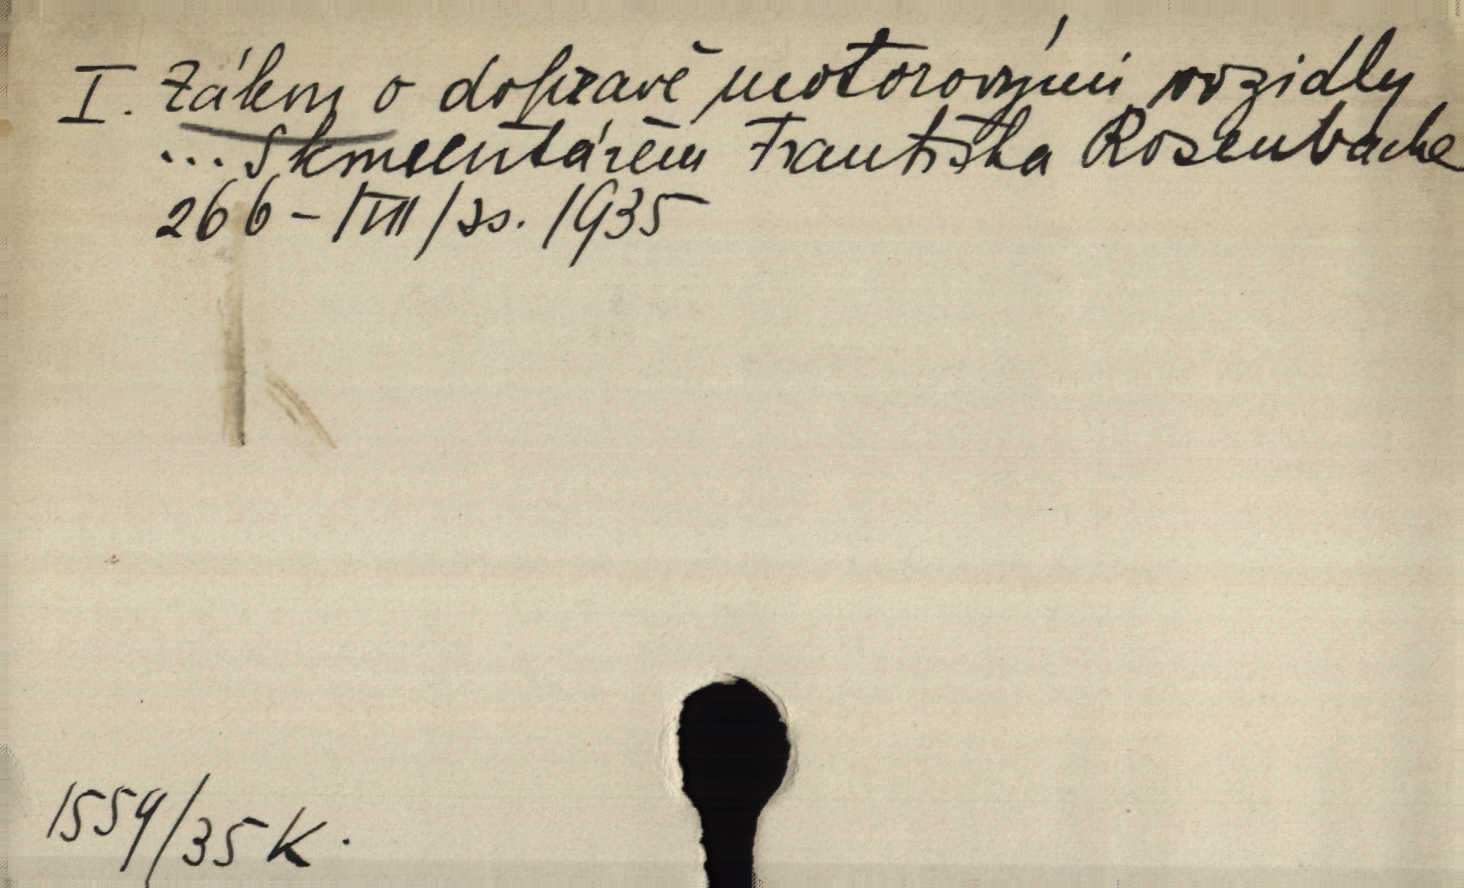 I. Zákon o dopravě motorovými vozidly
... s kmentářem Františka Rosenbacha
266 - IIII/35. 1935
1559/35 K.